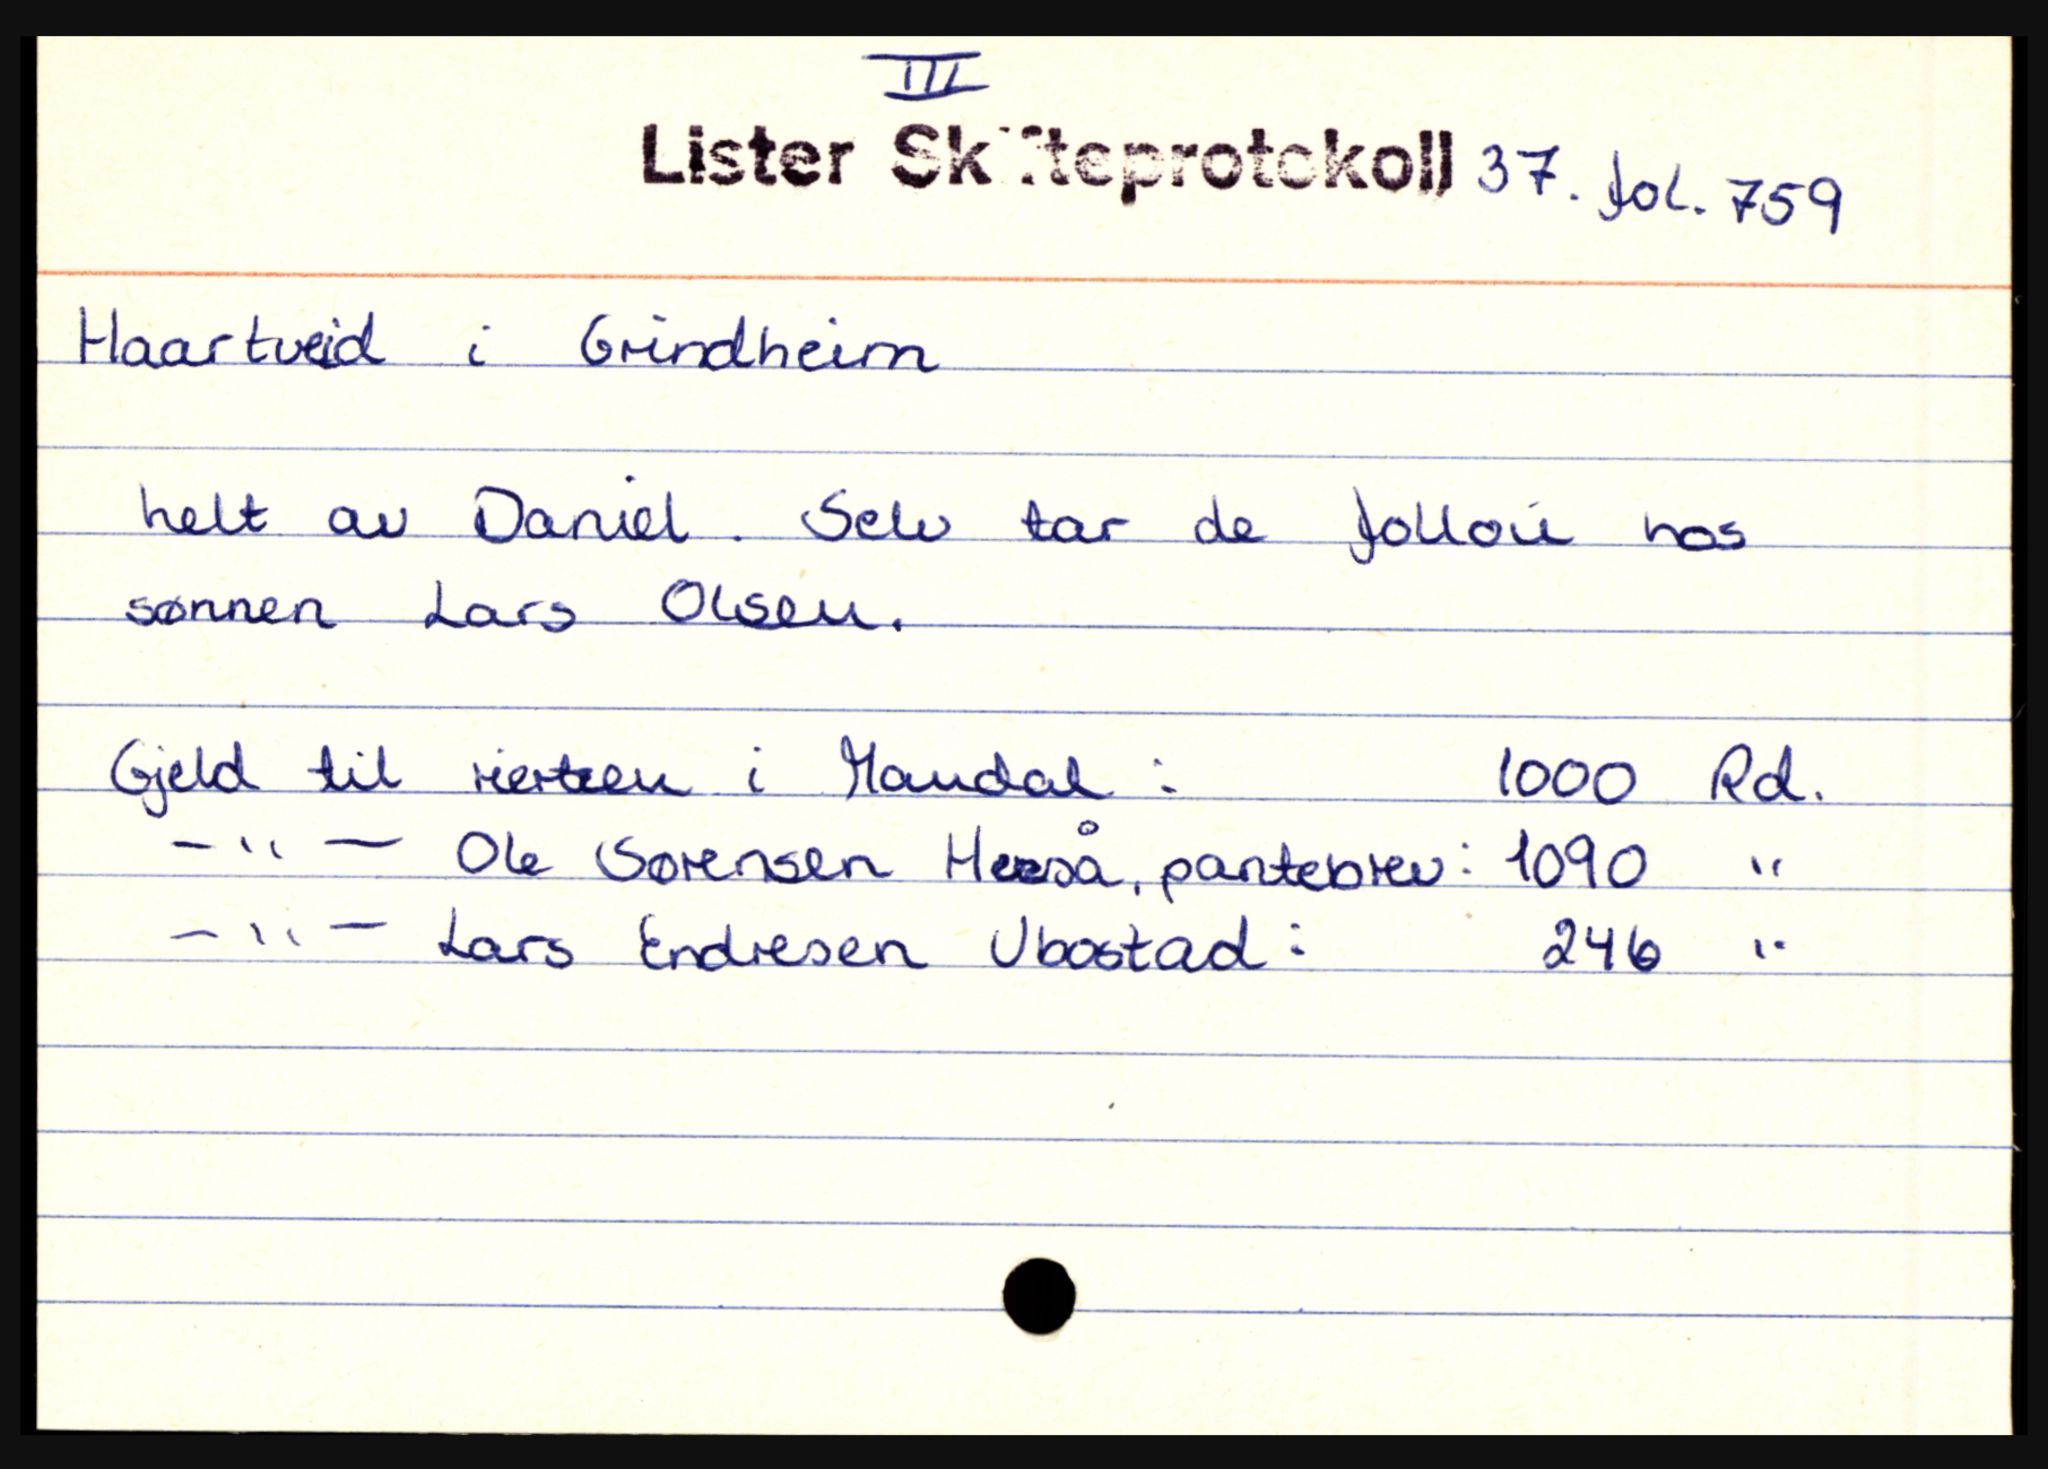 III
Lister Skifteprotokoll 37. fol. 759
Haartveid i Grindheim
helt av Daniel. Selv tar de follou hos
sønnen Lars Olsen.
Gjeld til i Mandal : 1000 Rd.
— " — Ole Sørensen pantebrev : 1090 "
— " — Lars Endresen Ubostad : 246 "